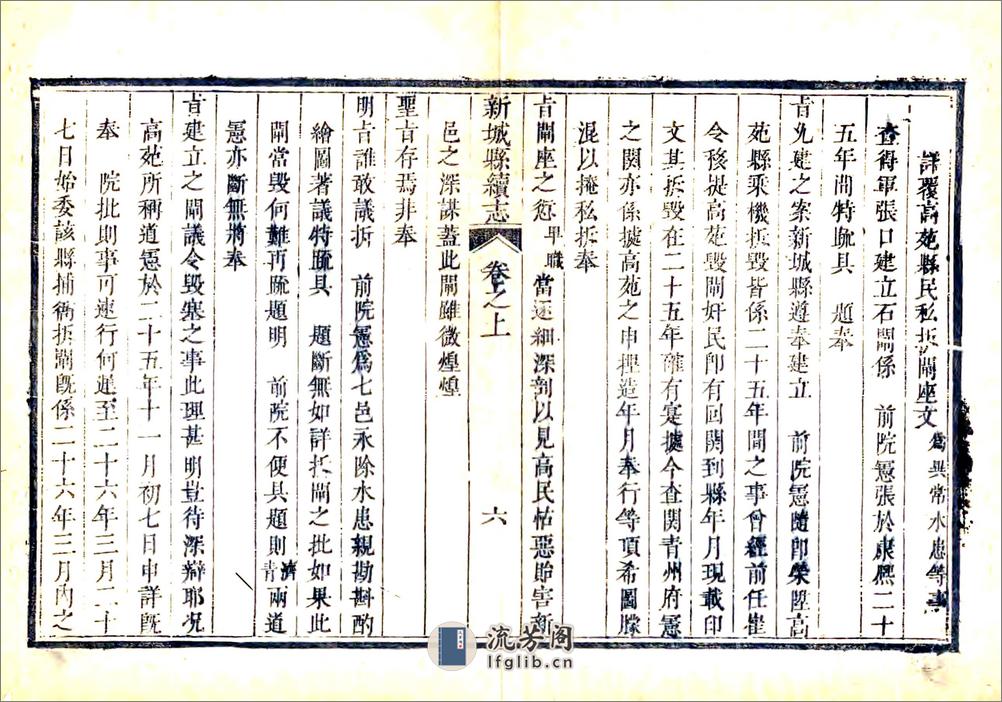 詳覆高苑縣民私拆閘座文 爲異常水患等事
查得軍張口建立石閘係 前院憲張於康熙二十
五年間特疏具 題奉
旨允建之案新城縣遵奉建立 前院憲隨卽榮陞高
苑縣乘機拆毀皆係二十五年間之事曾經前任崔
令移提高苑毀閘奸民卽有回関到縣年月現載印
文其拆毀在二十五年確有寔據今查関青州府憲
之関亦係據高苑之申捏造年月奉行等項希圖朦
混以掩私拆奉
旨閘座之愆卑職當逐細深剖以見高民怙惡貽害新
新城縣續志 卷之上 六
邑之深謀蓋此閘雖微煌煌
聖旨存焉非奉
明旨誰敢議拆 前院憲爲七邑永除水患親勘斟酌
繪圖著議特疏具 題斷無如詳拆閘之批如果此
閘當毀何難再疏題明 前院不便具題則濟青兩道
憲亦斷無將奉
旨建立之閘議令毀塞之事此理甚明豈待深辯耶况
高苑所稱道憲於二十五年十一月初七日申詳旣
奉 院批則事可速行何遲至二十六年三月二十
七日始委該縣捕衙拆閘旣係二十六年三月內之
流芳阁
lfglib.cn